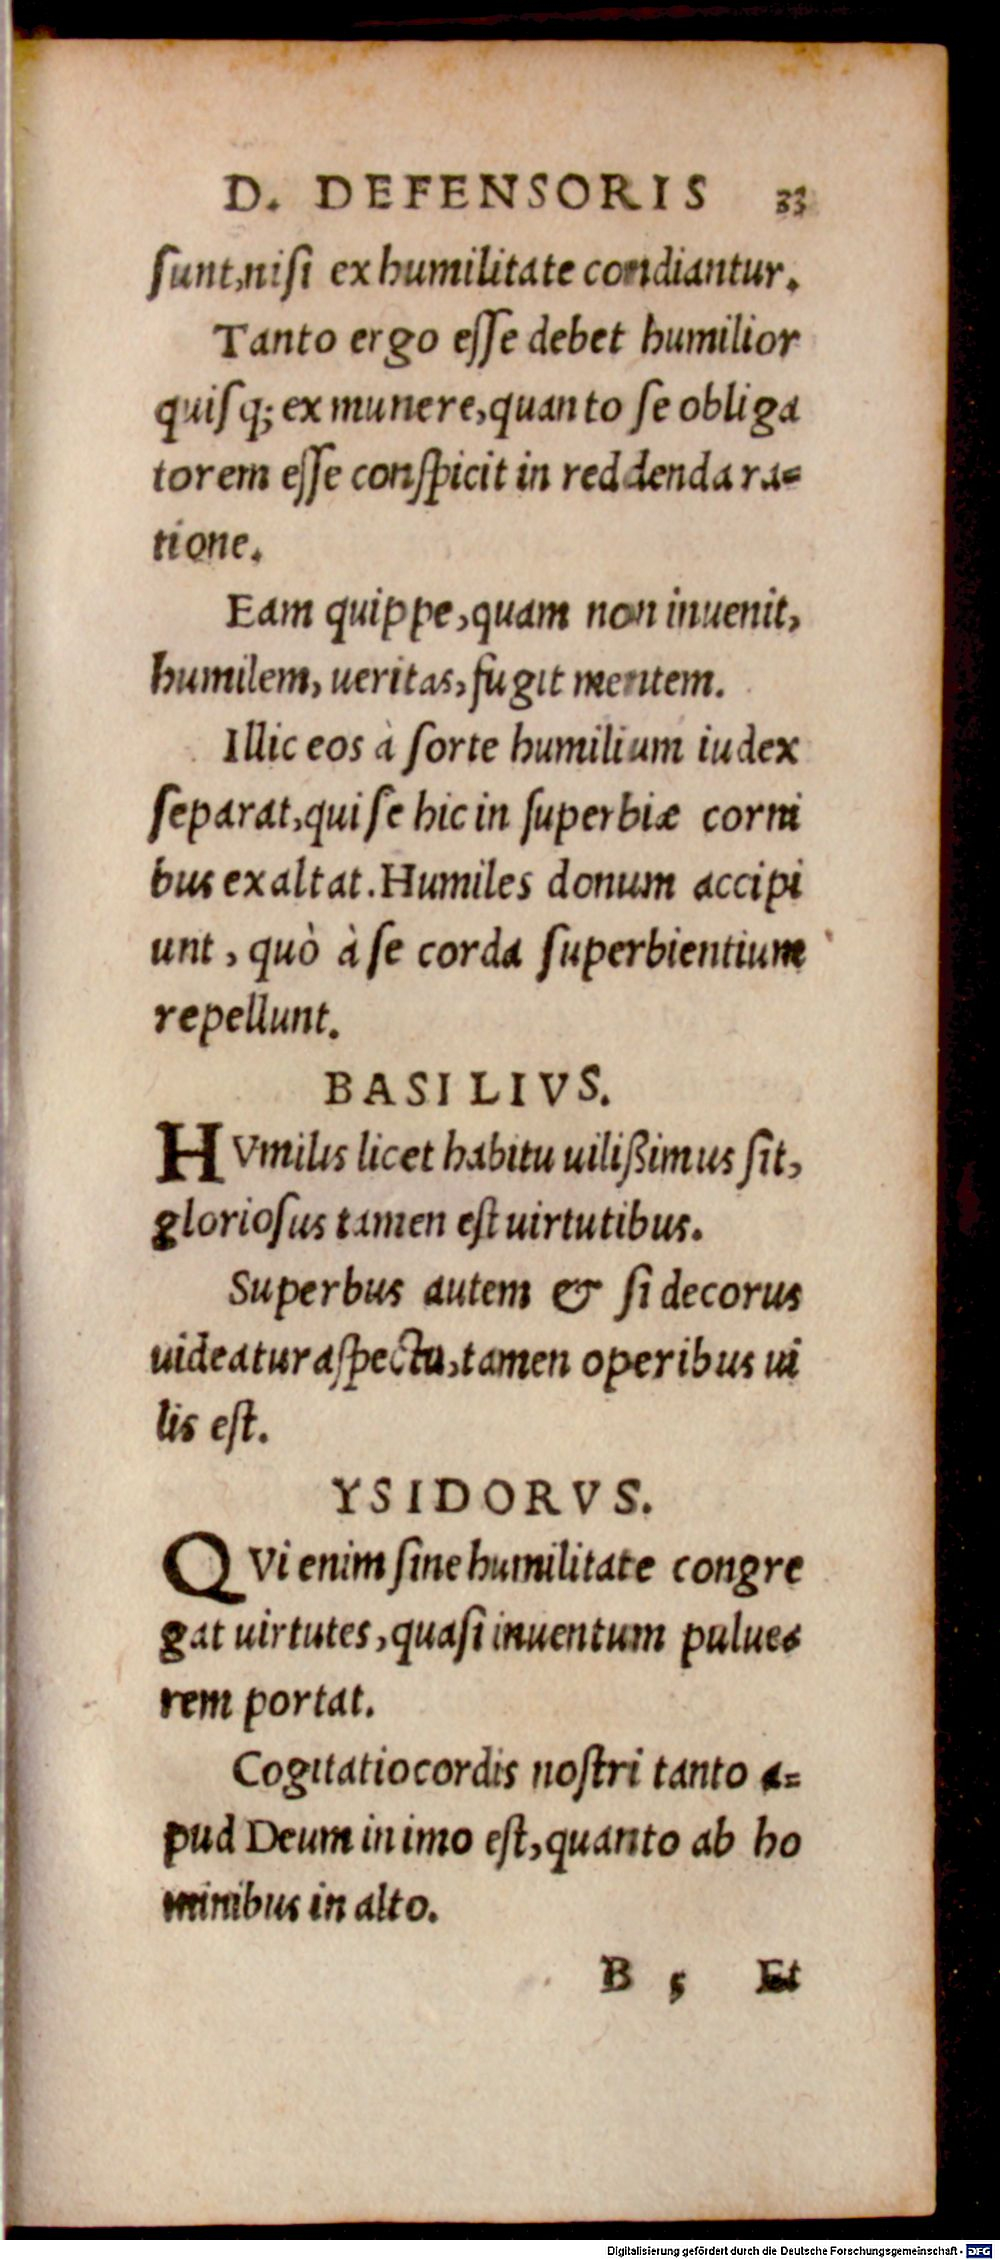 D. DEFENSORIS 33
sunt, nisi ex humilitate condiantur.
Tanto ergo esse debet humilior
quisq; ex munere, quanto se obliga
torem esse conspicit in reddenda ra=
tione.
Eam quippe, quam non inuenit,
humilem, ueritas, fugit mentem.
Illic eos à sorte humilium iudex
separat, qui se hic in superbiæ corni
bus exaltat. Humiles donum accipi
unt, quò à se corda superbientium
repellunt.
BASILIVS.
HVmilis licet habitu uilißimus sit,
gloriosus tamen est uirtutibus.
Superbus autem & si decorus
uideatur aspectu, tamen operibus ui
lis est.
YSIDORVS.
QVi enim sine humilitate congre
gat uirtutes, quasi inuentum pulue=
rem portat.
Cogitatio cordis nostri tanto a=
pud Deum in imo est, quanto ab ho
minibus in alto.
B 5 Et
Digitalisierung gefördert durch die Deutsche Forschungsgemeinschaft - DFG